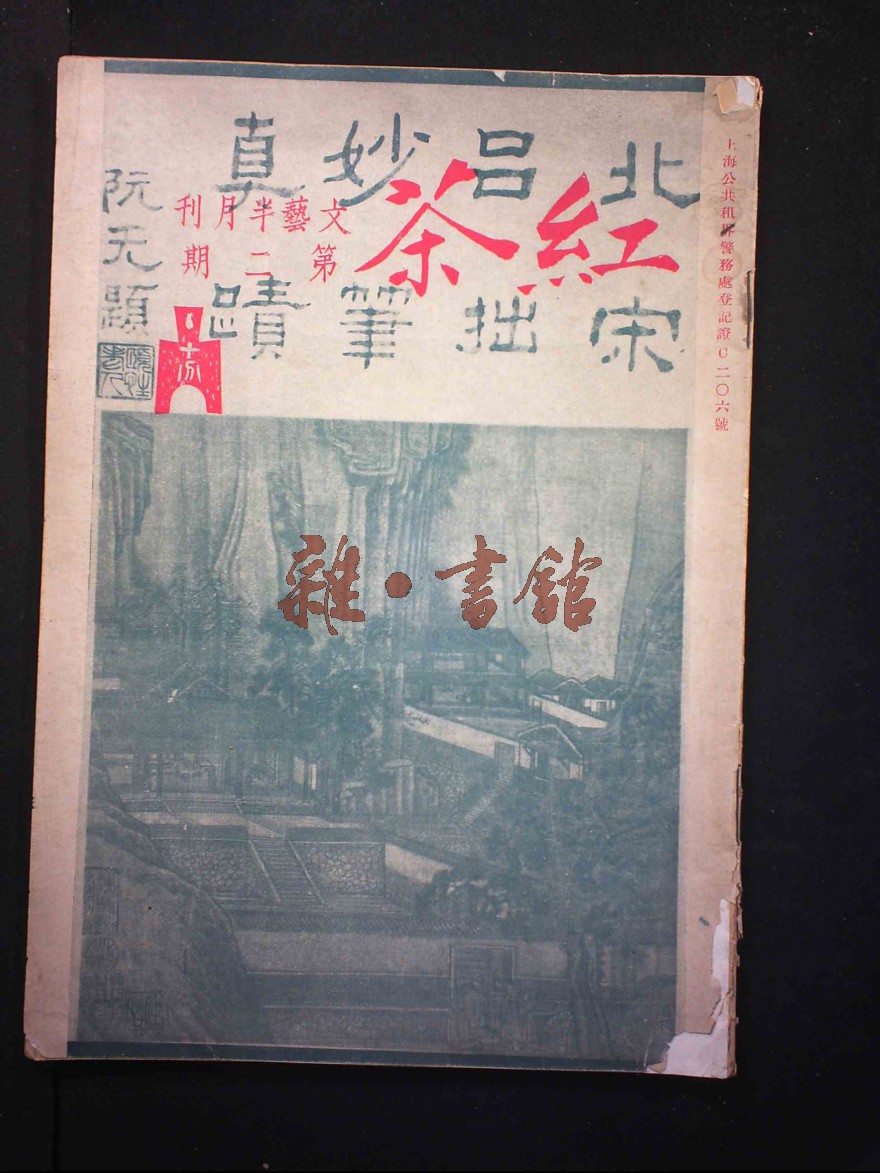 北宋呂拙妙筆真蹟
阮元題
紅茶
文藝半月刊
第二期
十分
上海公共租界警務處登記證C二〇六號
雜·書館